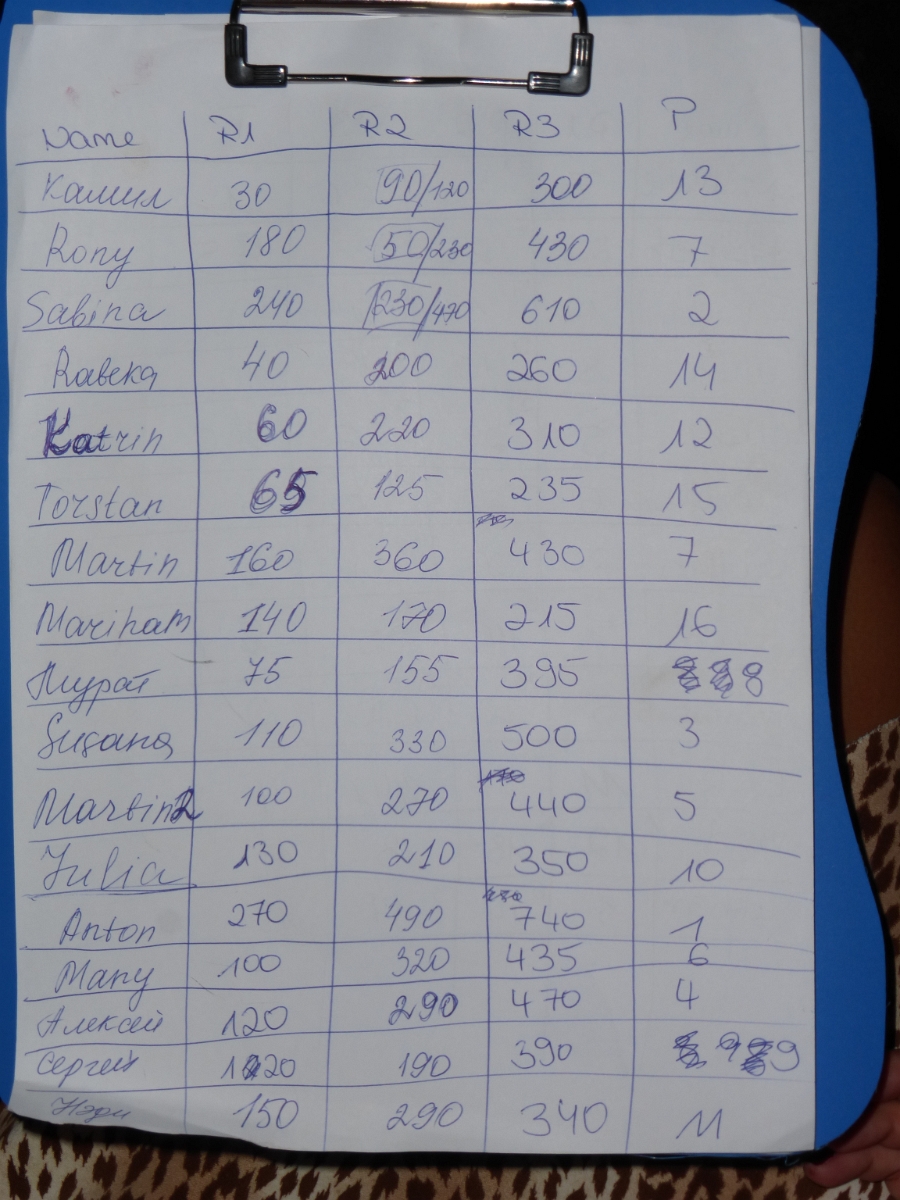 Name R1 R2 R3 P
Камил 30 90/120 300 13
Rony 180 50/230 430 7
Sabina 240 230/470 610 2
Rabeka 40 200 260 14
Katrin 60 220 310 12
Torstan 65 125 235 15
Martin 160 360 430 7
Mariham 140 170 215 16
Мурат 75 155 395 8
Susana 110 330 500 3
Martin2 100 270 440 5
Julia 130 210 350 10
Anton 270 490 740 1
Many 100 320 435 6
Алексей 120 290 470 4
Сергей 120 190 390 9 9
150 290 340 11